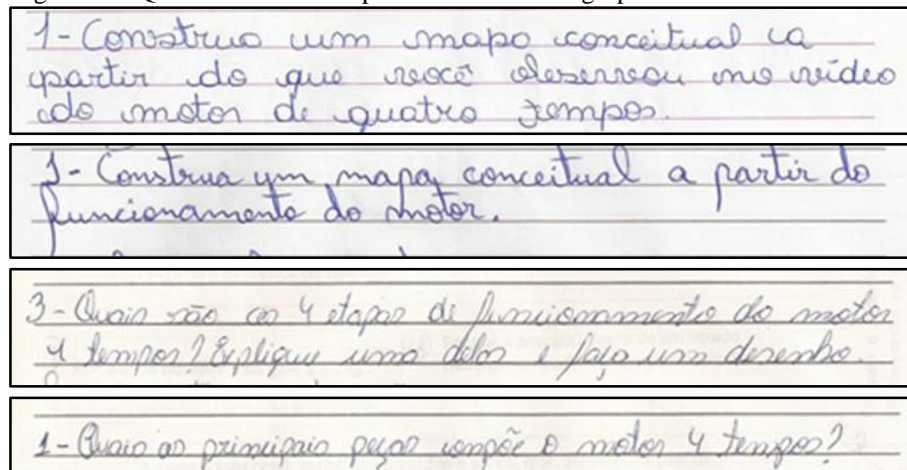 1- Construa um mapa conceitual a
partir do que você observou no vídeo
do motor de quatro tempos.
1- Construa um mapa conceitual a partir do
funcionamento do motor.
3- Quais são as 4 etapas de funcionamento do motor
4 tempos? Explique uma delas e faça um desenho.
1- Quais as principais peças compõe o motor 4 tempos?